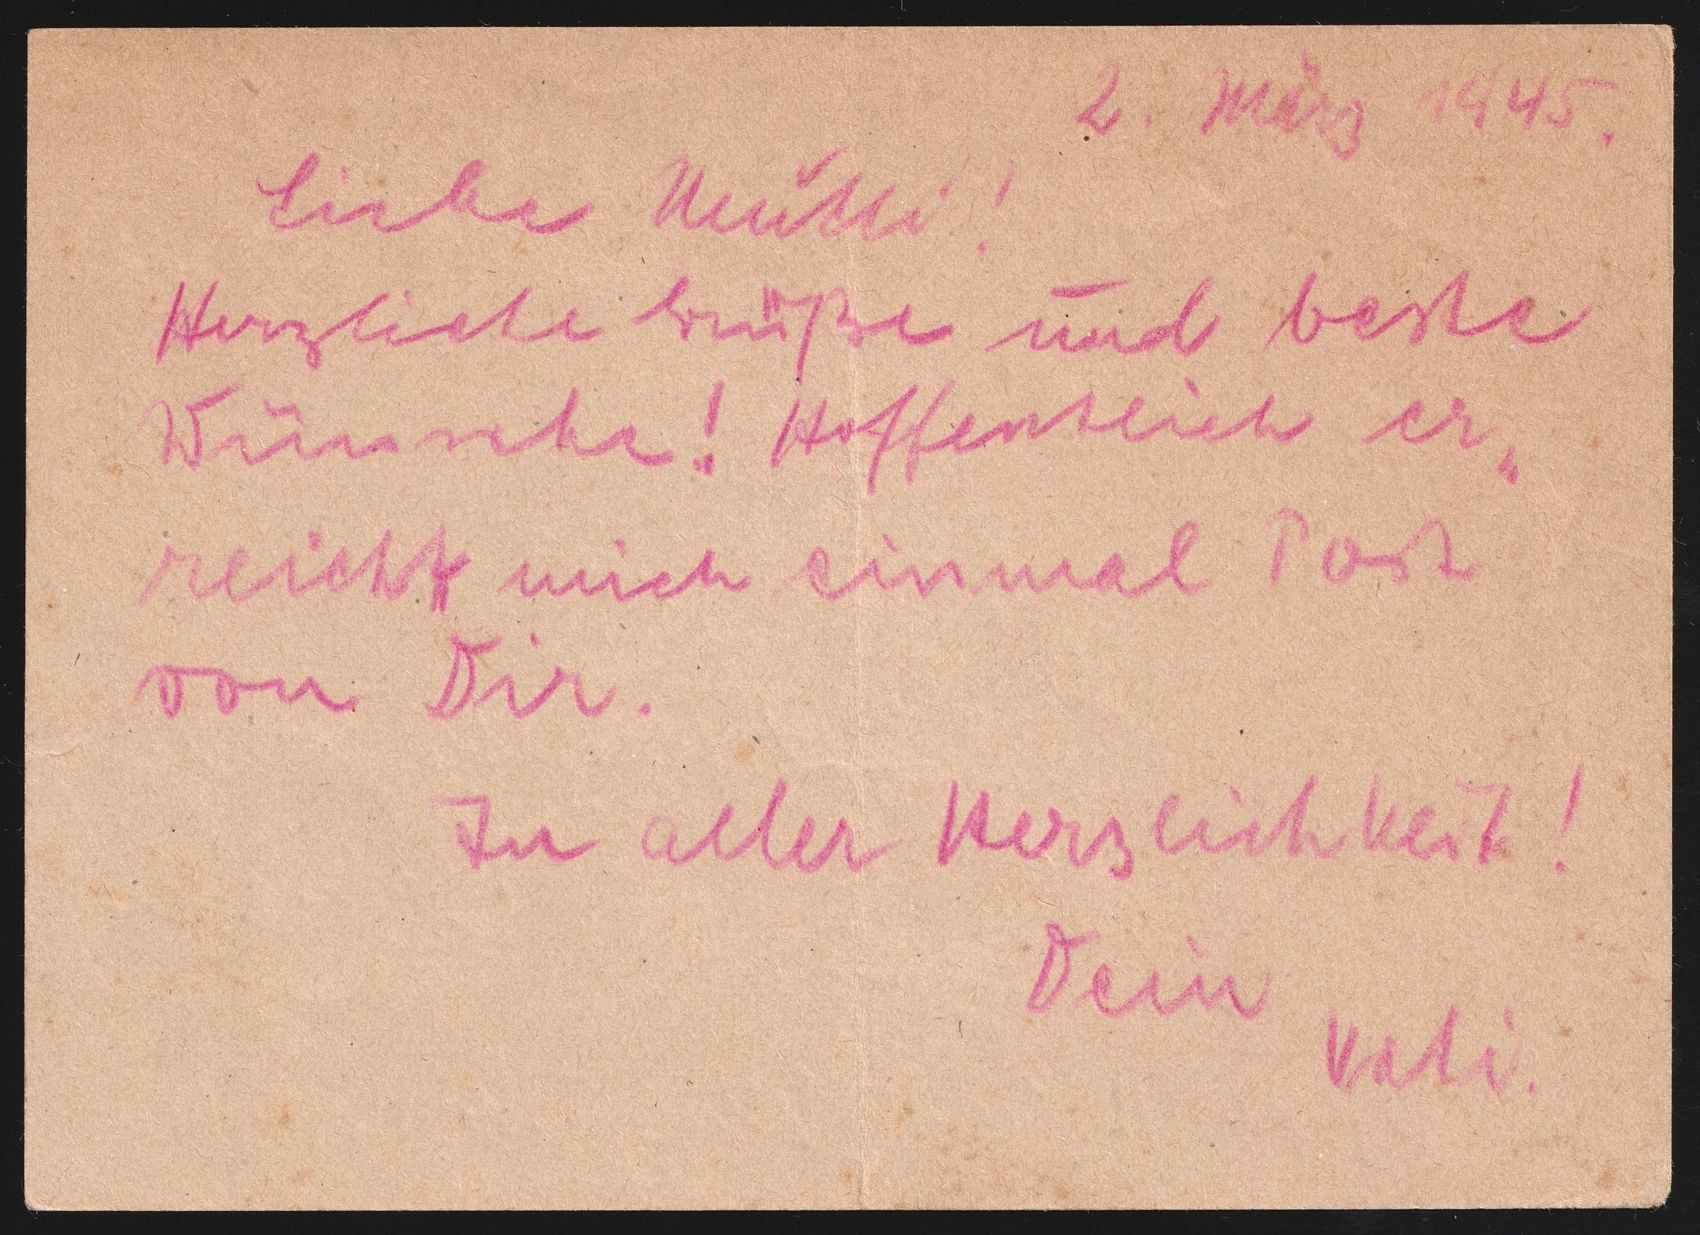 2. März 1945.
Liebe Mutti!
Herzliche Grüße und beste
Wünsche! Hoffentlich er„
reicht mich einmal Post
von Dir.
In aller Herzlichkeit!
Dein
Vati.